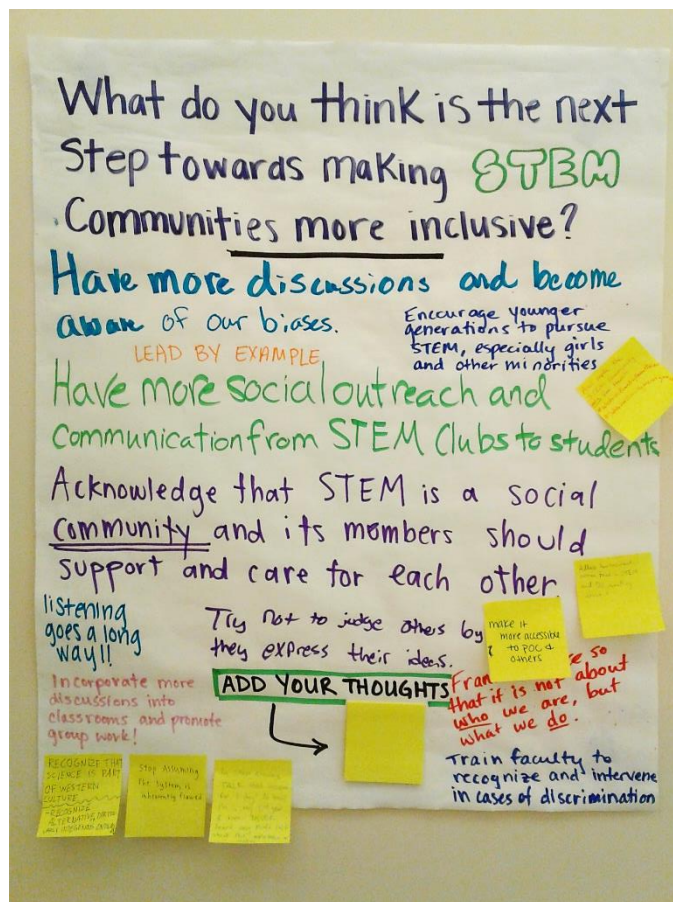 What do you think is the next
Step towards making STEM
Communities more inclusive?
Have more discussions and become
aware of our biases.
LEAD BY EXAMPLE
Encourage younger
generations to pursue
STEM, especially girls
and other minorities
Have more social outreach and
communication from STEM Clubs to students
Acknowledge that STEM is a social
community and its members should
support and care for each other.
listening
goes a long
way!!
Try not to judge others by
they express their ideas.
make it
more accessible
to POC &
others
Incorporate more
discussions into
classrooms and promote
group work!
ADD YOUR THOUGHTS
so
that it is not about
who we are, but
what we do.
Train faculty to
recognize and intervene
in cases of discrimination
RECOGNIZE THAT
SCIENCE IS PART
OF WESTERN
CULTURE
RECOGNIZE
Stop Assuming
the system is